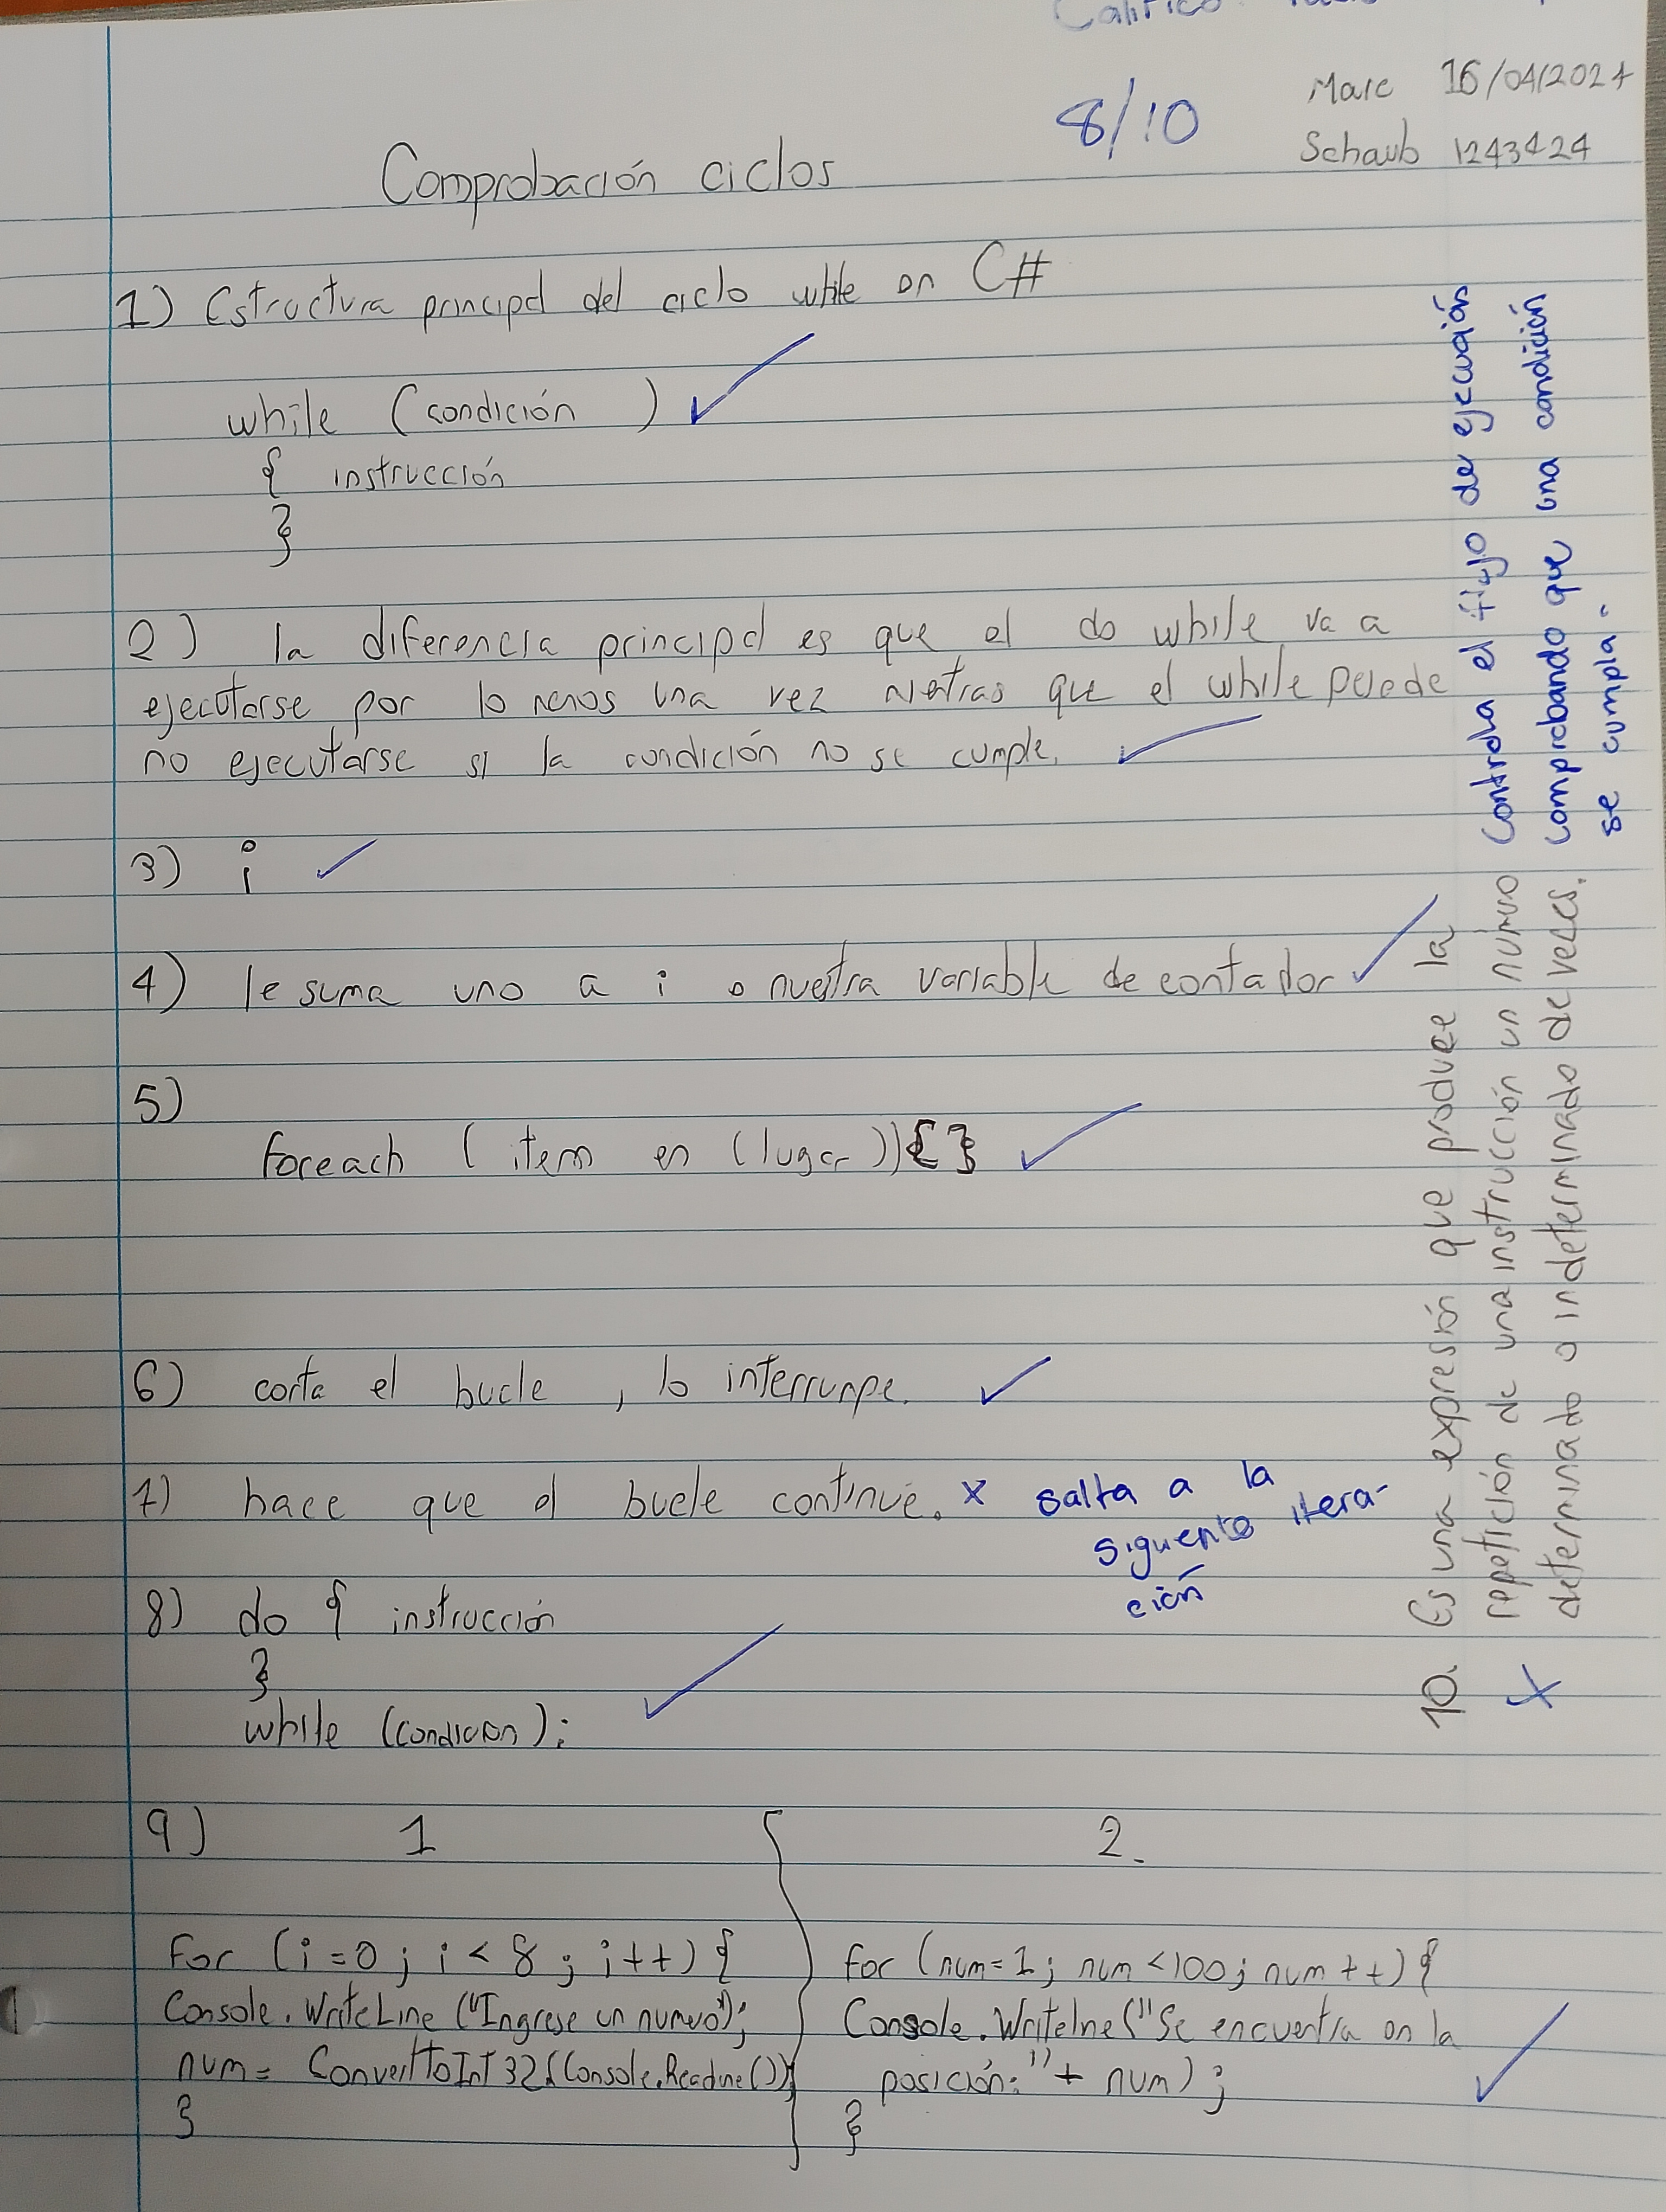 8/10
Marc 16/04/2024
Schaub 1243424
Comprobación ciclos
1) Estructura principal del ciclo while en C#
while (condición )
{ instrucción
}
2) la diferencia principal es que el do while va a
ejecutarse por lo menos una vez mientras que el while puede
no ejecutarse si la condición no se cumple.
3) i
4) le suma uno a i o nuestra variable de contador
5)
foreach ( item en (lugar)){}
6) corta el bucle , lo interrumpe.
7) hace que el bucle continue. x salta a la
siguiente itera-
ción
8) do { instrucción
}
while (condicion);
9) 1
for (i=0; i < 8; i++) {
Console.WriteLine ("Ingrese un numero");
num= ConvertToInt32(Console.Readline());
}
2.
for (num=1; num <100; num ++) {
Console.Writeline("Se encuentra en la
posición:" + num);
}
10. Es una expresión que produce la
repetición de una instrucción un número
determinado o indeterminado de veces.
x
Controla el flujo de ejecución
comprobando que una condición
se cumpla.